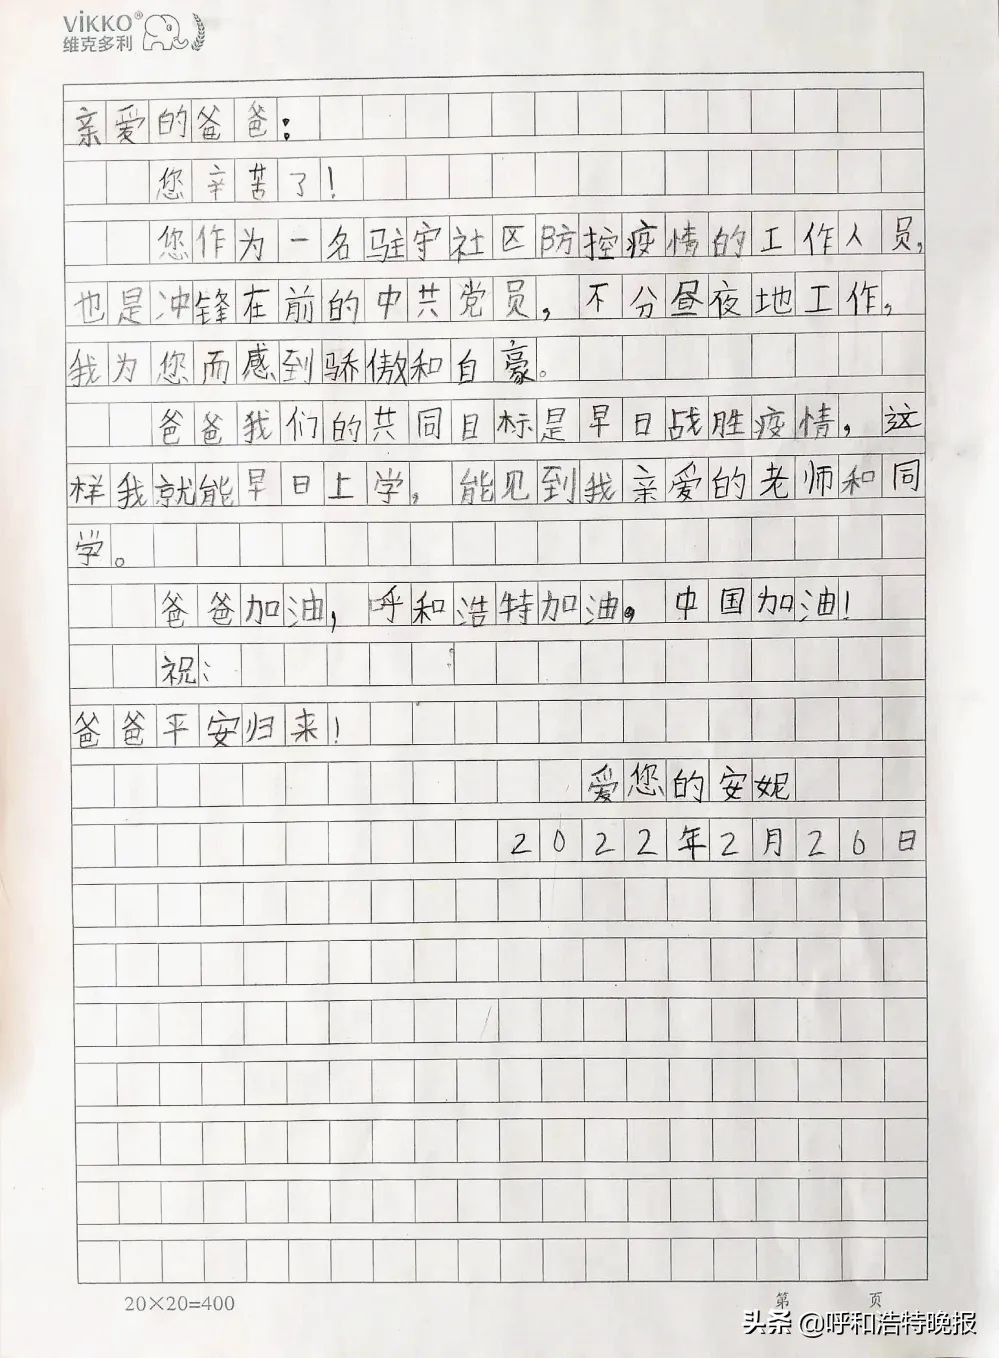 ViKKO®
维克多利
亲爱的爸爸：
您辛苦了！
您作为一名驻守社区防控疫情的工作人员，
也是冲锋在前的中共党员，不分昼夜地工作，
我为您而感到骄傲和自豪。
爸爸我们的共同目标是早日战胜疫情，这
样我就能早日上学，能见到我亲爱的老师和同
学。
爸爸加油，呼和浩特加油。中国加油！
祝：
爸爸平安归来！
爱您的安妮
2022年2月26日
20×20=400
第 页
头条 @呼和浩特晚报